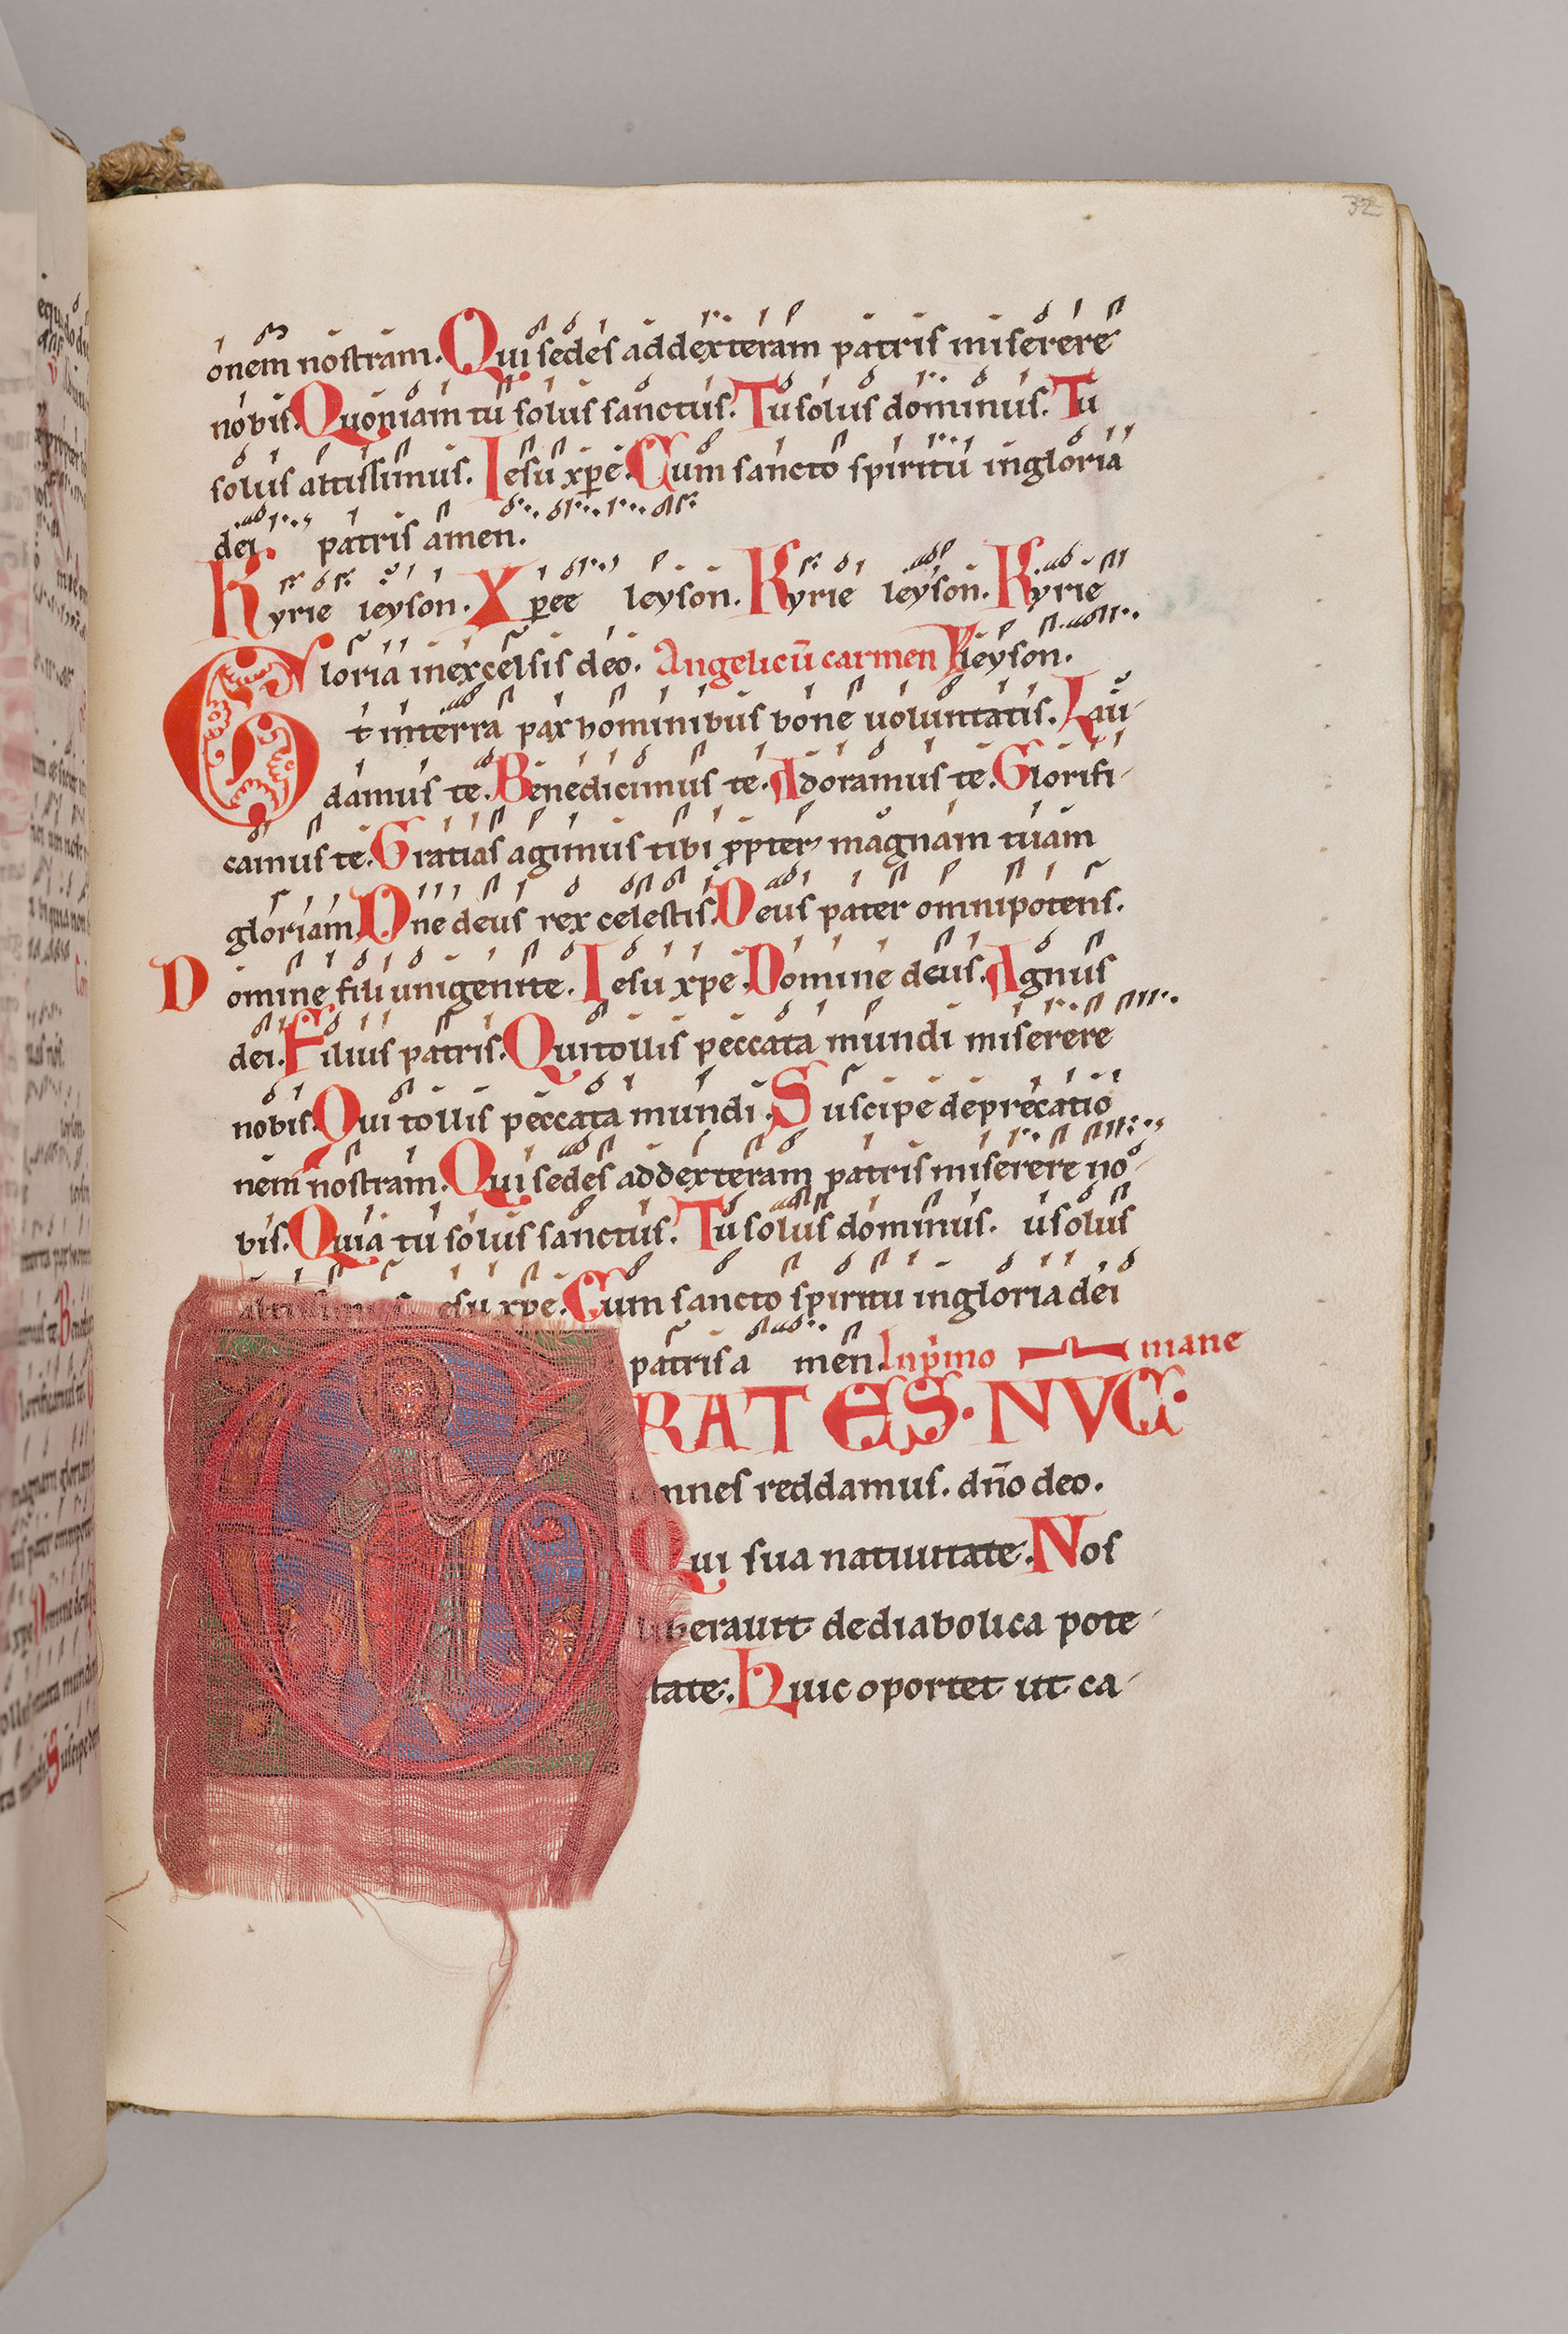 32
onem nostram. Qui sedes addexteram patris miserere
nobis. Quoniam tu solus sanctus. Tu solus dominus. Tu
solus altissimus. Iesu xpe. Cum sancto spiritu ingloria
dei patris amen.
Kyrie leyson. Xpee leyson. Kyrie leyson. Kyrie
Gloria inexcelsis deo. Angelicũ carmen leyson.
Et interra pax hominibus bone uoluntatis. Lau-
damus te. Benedicimus te. Adoramus te. Glorifi-
camus te. Gratias agimus tibi propter magnam tuam
gloriam. Dne deus rex celestis. Deus pater omnipotens.
Domine fili unigenite. Iesu xpe. Domine deus. Agnus
dei. Filius patris. Qui tollis peccata mundi miserere
nobis. Qui tollis peccata mundi. Suscipe deprecatio
nem nostram. Qui sedes addexteram patris miserere no-
bis. Quia tu solus sanctus. Tu solus dominus. u solus
altissimus esu xpe. Cum sancto spiritu ingloria dei
patris a men. In pimo mane
RATES. NVC.
omnes reddamus. dño deo.
Qui sua natiuitate. Nos
liberauit dediabolica pote-
state. Huic oportet ut ca-